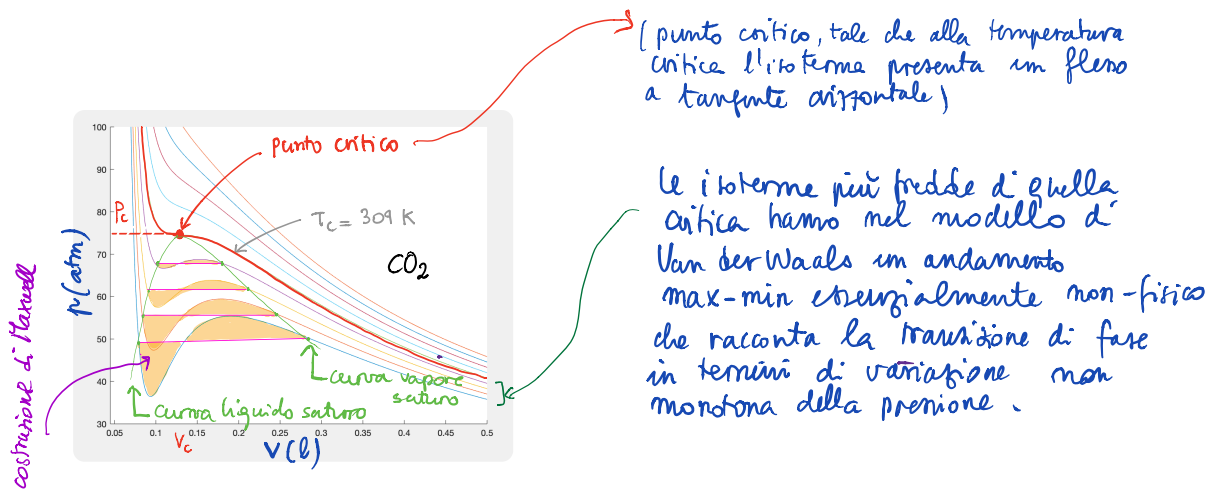 (punto critico, tale che alla temperatura
critica l'isoterma presenta un flesso
a tangente orizzontale)
punto critico
Pc
Tc = 309 K
CO2
p(atm)
100
90
80
70
60
50
40
30
0.05 0.1 0.15 0.2 0.25 0.3 0.35 0.4 0.45 0.5
Vc
V(l)
curva vapore
saturo
curva liquido saturo
costruzione di Maxwell
le isoterme più fredde di quella
critica hanno nel modello di
Van der Waals un andamento
max-min essenzialmente non-fisico
che racconta la transizione di fase
in termini di variazione non
monotona della pressione.